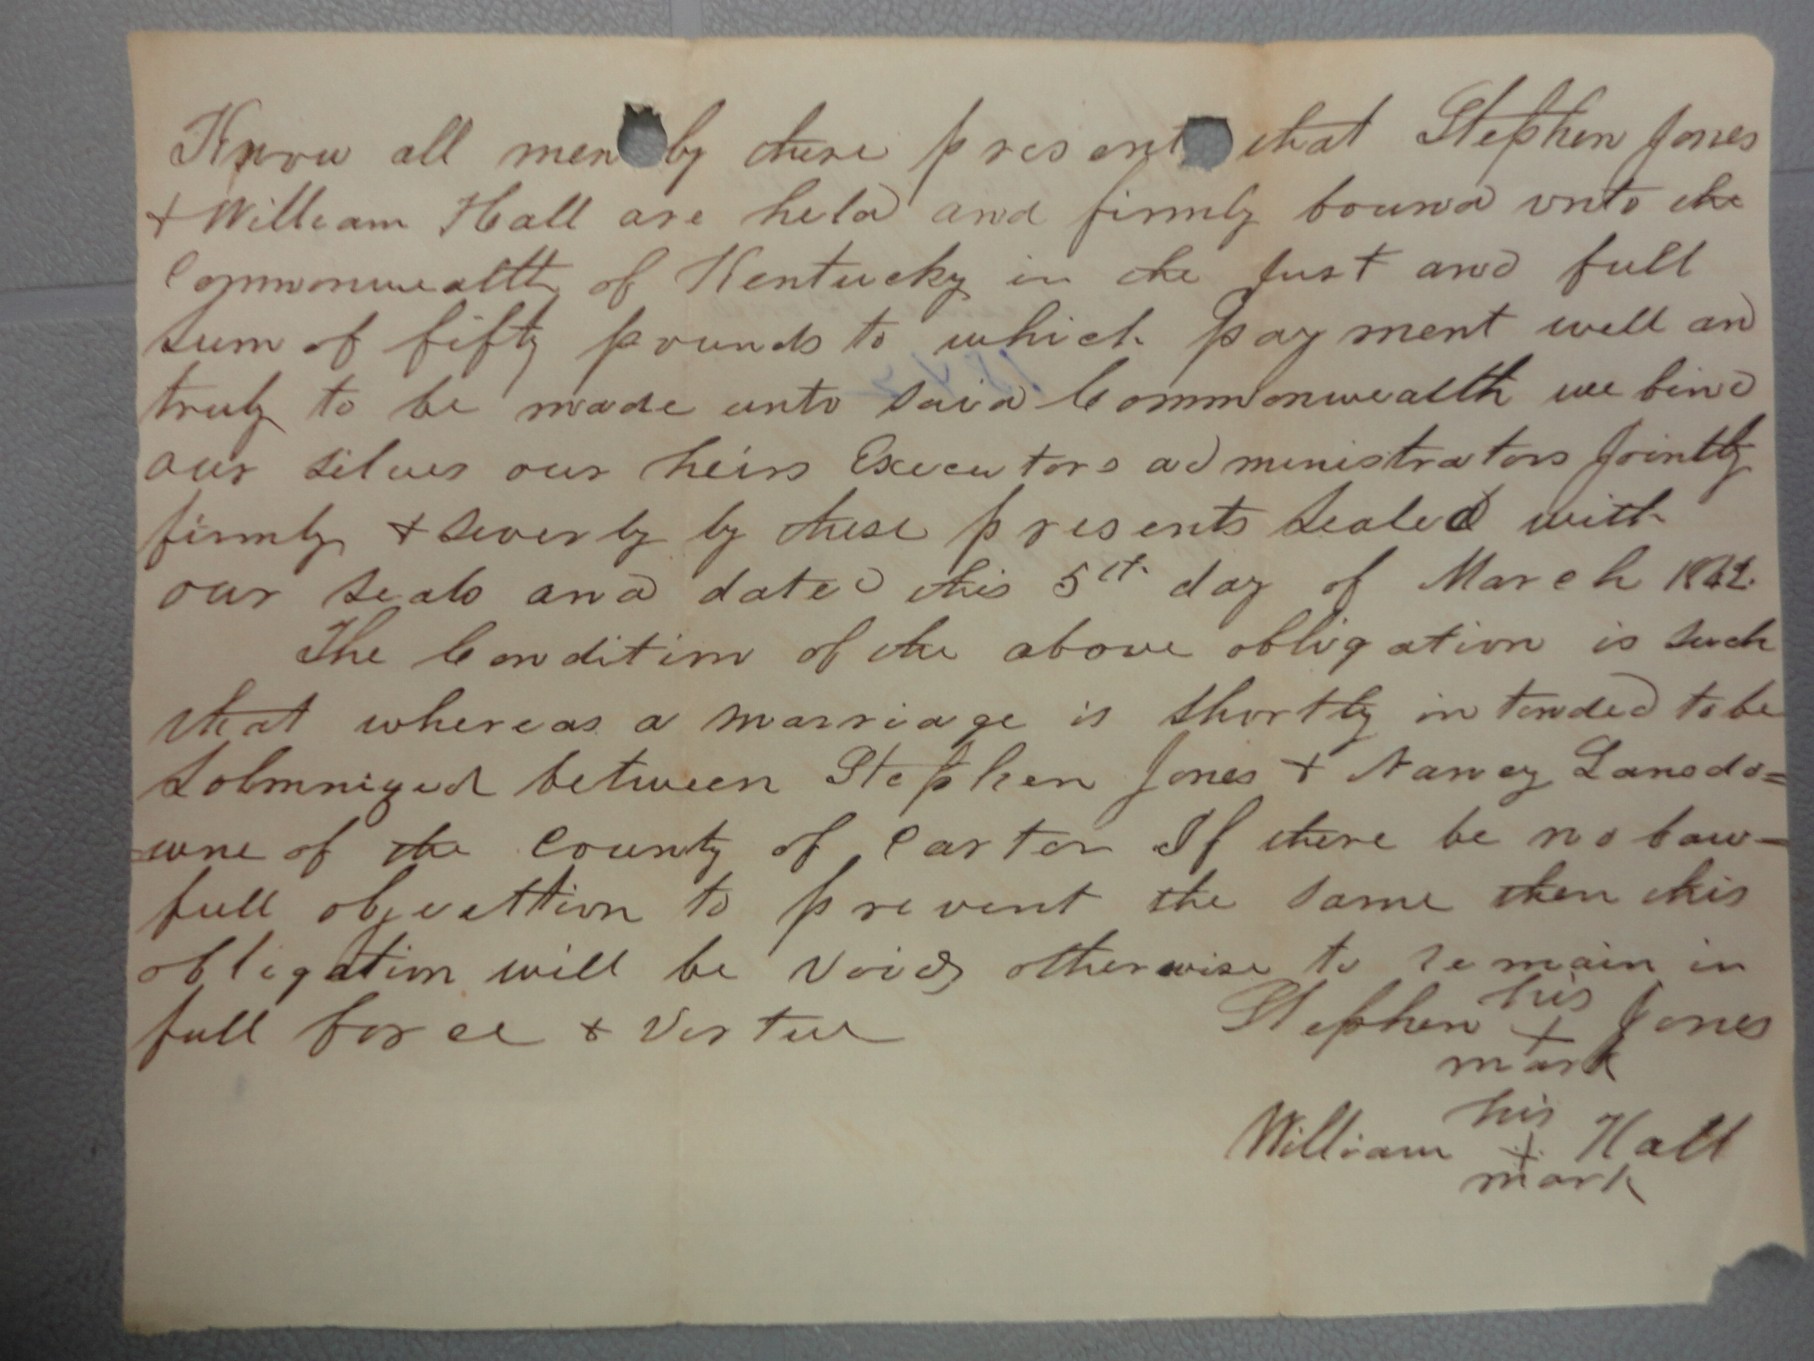 Know all men by these present that Stephen Jones
+ William Hall are held and firmly bound unto the
Commonwealth of Kentucky in the Just and full
sum of fifty pounds to which payment well and
truly to be made unto said Commonwealth we bind
our selves our heirs Executors administrators Jointly
firmly + severly by these presents sealed with
our seals and dated this 5th day of March
The Condition of the above obligation is such
that whereas a marriage is shortly intended to be
Solmnized between Stephen Jones + Nancy Lansdo=
=wne of the County of Carter If there be no law=
full objecttion to prevent the same then this
obligation will be void, otherwise to remain in
full force + Virtue
Stephen his + Jones
mark
William his + Hall
mark